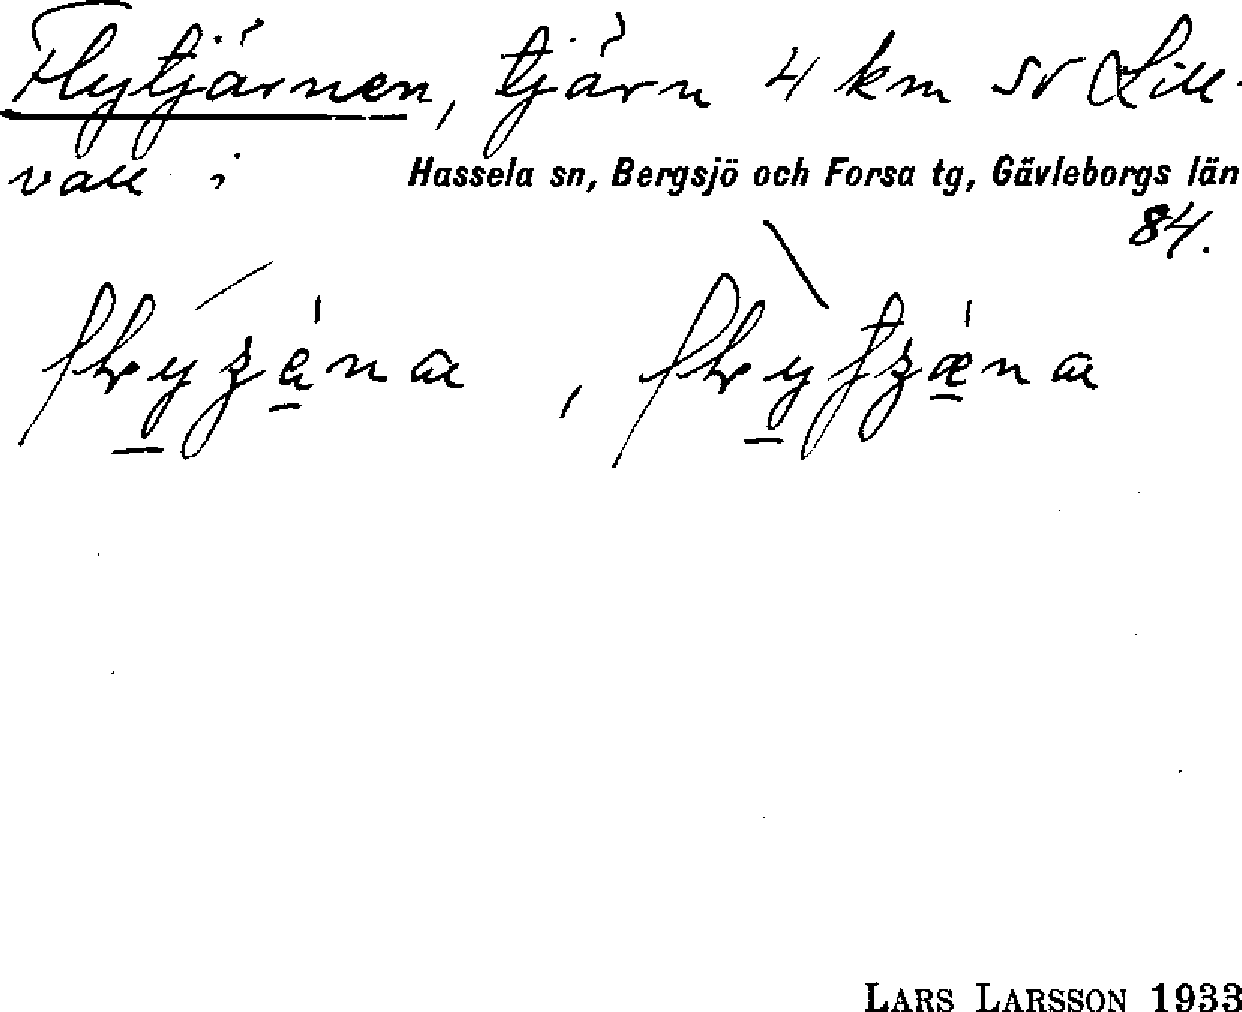 Flytjärnen, tjärn 4 km sv Lill-
vall i Hassela sn, Bergsjö och Forsa tg, Gävleborgs län
84.
LARS LARSSON 1933